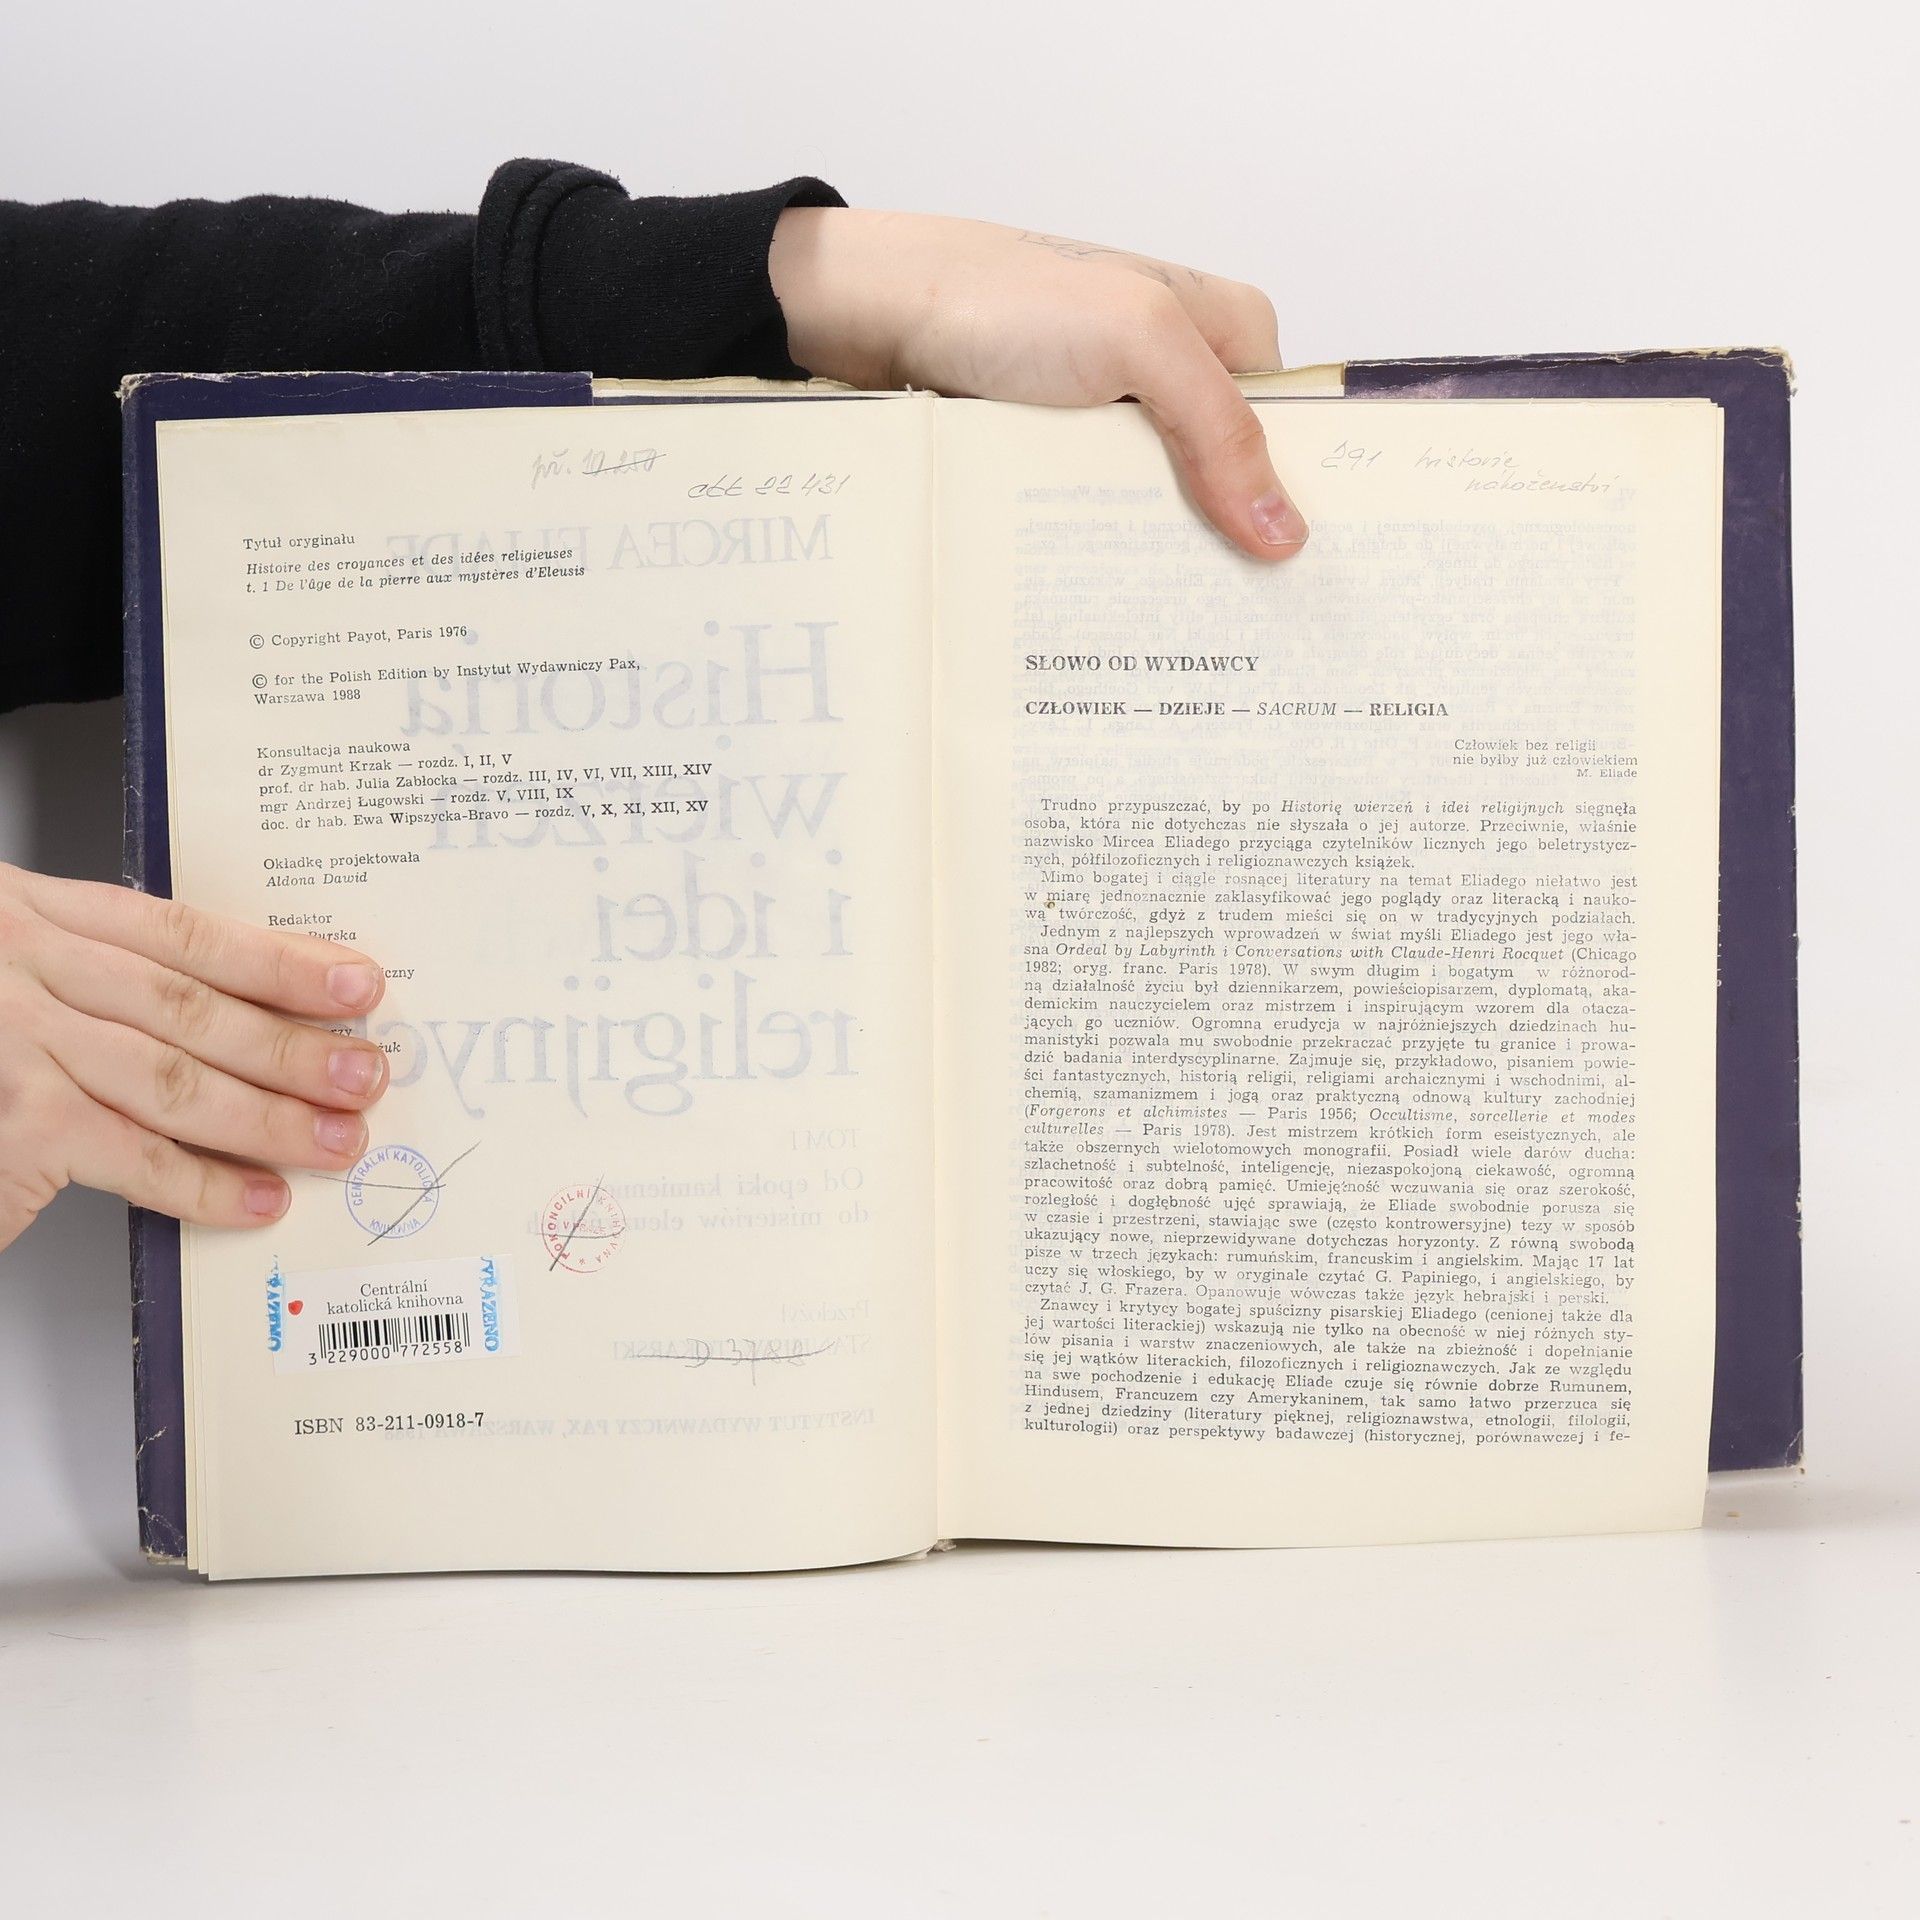 př. 10.250
Tytuł oryginału
Histoire des croyances et des idées religieuses
t. 1 De l'âge de la pierre aux mystères d'Eleusis
© Copyright Payot, Paris 1976
© for the Polish Edition by Instytut Wydawniczy Pax,
Warszawa 1988
Konsultacja naukowa
dr Zygmunt Krzak — rozdz. I, II, V
prof. dr hab. Julia Zabłocka — rozdz. III, IV, VI, VII, XIII, XIV
mgr Andrzej Ługowski — rozdz. V, VIII, IX
doc. dr hab. Ewa Wipszycka-Bravo — rozdz. V, X, XI, XII, XV
Okładkę projektowała
Aldona Dawid
Redaktor
CENTRÁLNÍ KATOLICKÁ
KNIHOVNA
VYŘAZENO
Centrální
katolická knihovna
3 229000 772558
D 3788
ISBN 83-211-0918-7
291 historie
náboženství
SŁOWO OD WYDAWCY
CZŁOWIEK — DZIEJE — SACRUM — RELIGIA
Człowiek bez religii
nie byłby już człowiekiem
M. Eliade
Trudno przypuszczać, by po Historię wierzeń i idei religijnych sięgnęła
osoba, która nic dotychczas nie słyszała o jej autorze. Przeciwnie, właśnie
nazwisko Mircea Eliadego przyciąga czytelników licznych jego beletrystycz-
nych, półfilozoficznych i religioznawczych książek.
Mimo bogatej i ciągle rosnącej literatury na temat Eliadego niełatwo jest
w miarę jednoznacznie zaklasyfikować jego poglądy oraz literacką i nauko-
wą twórczość, gdyż z trudem mieści się on w tradycyjnych podziałach.
Jednym z najlepszych wprowadzeń w świat myśli Eliadego jest jego wła-
sna Ordeal by Labyrinth i Conversations with Claude-Henri Rocquet (Chicago
1982; oryg. franc. Paris 1978). W swym długim i bogatym w różnorod-
ną działalność życiu był dziennikarzem, powieściopisarzem, dyplomatą, aka-
demickim nauczycielem oraz mistrzem i inspirującym wzorem dla otacza-
jących go uczniów. Ogromna erudycja w najróżniejszych dziedzinach hu-
manistyki pozwala mu swobodnie przekraczać przyjęte tu granice i prowa-
dzić badania interdyscyplinarne. Zajmuje się, przykładowo, pisaniem powie-
ści fantastycznych, historią religii, religiami archaicznymi i wschodnimi, al-
chemią, szamanizmem i jogą oraz praktyczną odnową kultury zachodniej
(Forgerons et alchimistes — Paris 1956; Occultisme, sorcellerie et modes
culturelles — Paris 1978). Jest mistrzem krótkich form eseistycznych, ale
także obszernych wielotomowych monografii. Posiadł wiele darów ducha:
szlachetność i subtelność, inteligencję, niezaspokojoną ciekawość, ogromną
pracowitość oraz dobrą pamięć. Umiejętność wczuwania się oraz szerokość,
rozległość i dogłębność ujęć sprawiają, że Eliade swobodnie porusza się
w czasie i przestrzeni, stawiając swe (często kontrowersyjne) tezy w sposób
ukazujący nowe, nieprzewidywane dotychczas horyzonty. Z równą swobodą
pisze w trzech językach: rumuńskim, francuskim i angielskim. Mając 17 lat
uczy się włoskiego, by w oryginale czytać G. Papiniego, i angielskiego, by
czytać J. G. Frazera. Opanowuje wówczas także język hebrajski i perski.
Znawcy i krytycy bogatej spuścizny pisarskiej Eliadego (cenionej także dla
jej wartości literackiej) wskazują nie tylko na obecność w niej różnych sty-
lów pisania i warstw znaczeniowych, ale także na zbieżność i dopełnianie
się jej wątków literackich, filozoficznych i religioznawczych. Jak ze względu
na swe pochodzenie i edukację Eliade czuje się równie dobrze Rumunem,
Hindusem, Francuzem czy Amerykaninem, tak samo łatwo przerzuca się
z jednej dziedziny (literatury pięknej, religioznawstwa, etnologii, filologii,
kulturologii) oraz perspektywy badawczej (historycznej, porównawczej i fe-